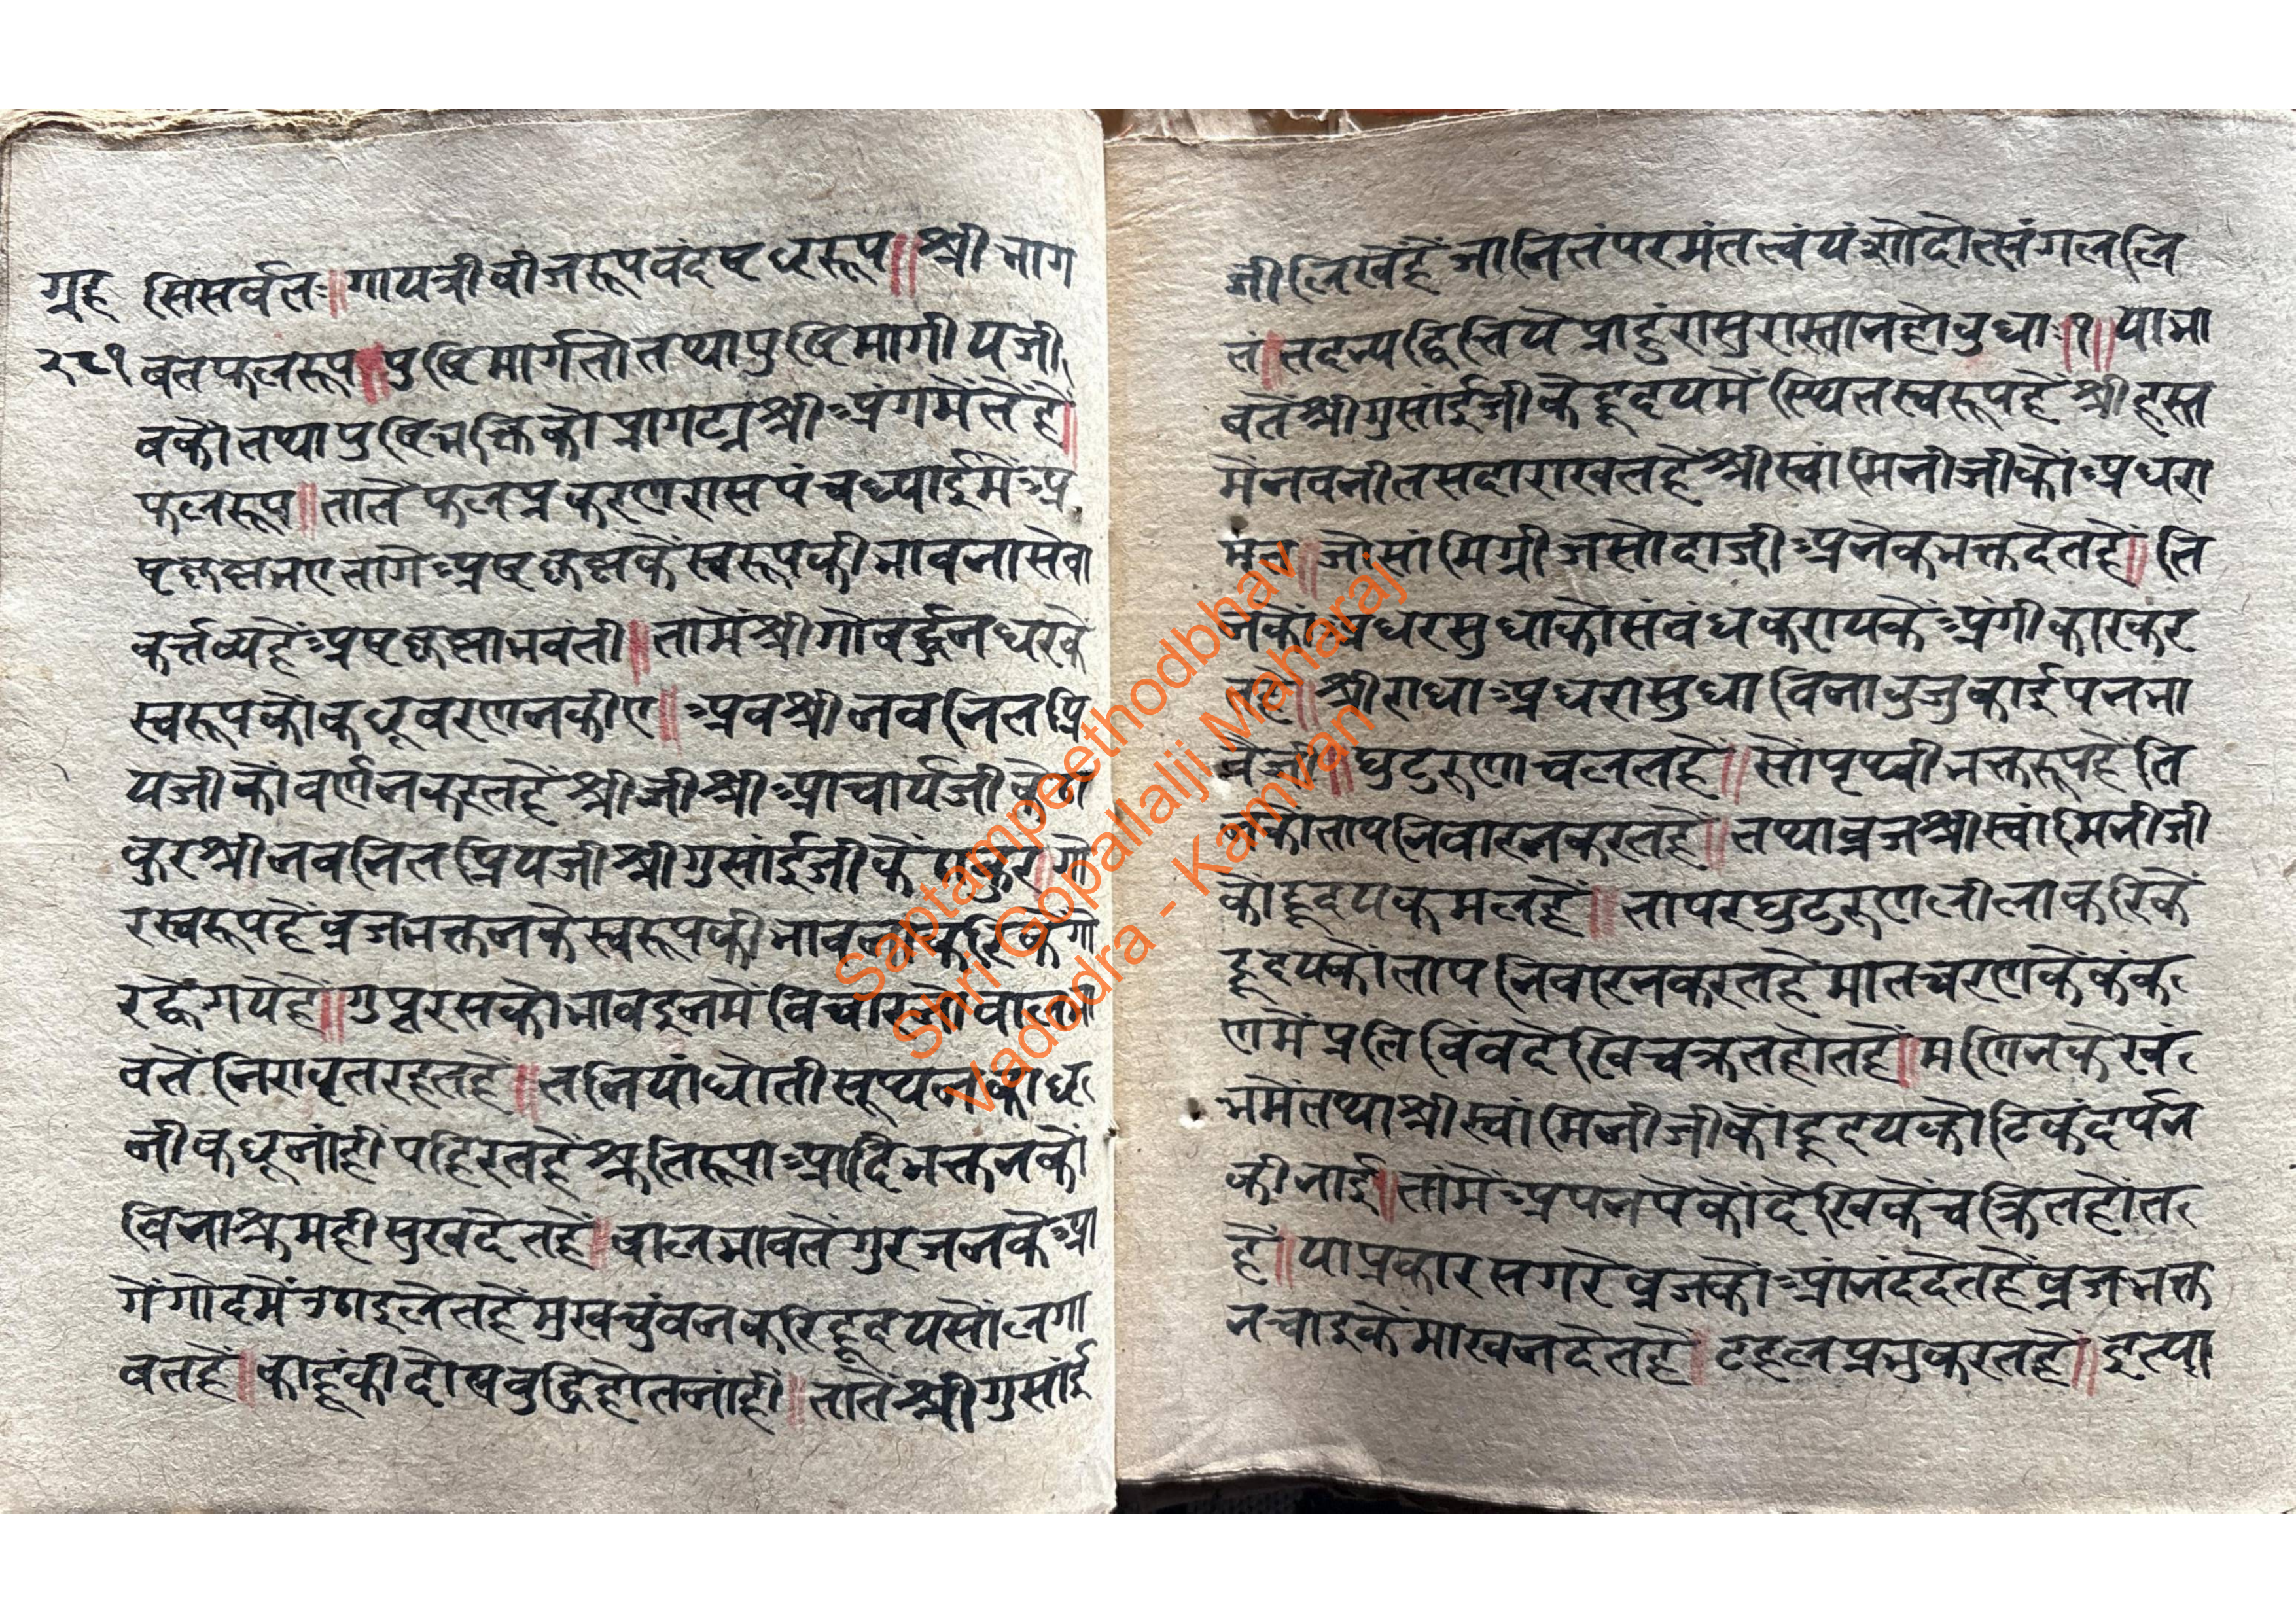 गृह सिसर्वत॰॥गायत्रीबीजरूपवंदषटधररूप॥श्रीभाग
२८१ वतफलरूप॥पुष्टिमार्गतोतथापुष्टिमार्गीयजी
वकौतथापुष्टिभक्तिकोप्रागट्यश्रीअंगमेतेंहै॥
फलरूप॥तातेंफलप्रकरणरासपंचाध्याईमेंअ
कर्त्तव्यहेंअष्टछापभवती॥तामेंश्रीगोवर्द्धनधरके
स्वरूपकोंकछूवरणनकीए॥अवश्रीनवनितप्रि
यजीकोंवर्णनकरतहेंश्रीजीश्रीआचार्यजीकेठा
कुरश्रीनवनितप्रियजीश्रीगुसांईजीकेंठाकुर॥गो
रस्वरूपहेंव्रजभक्तनकेस्वरूपकीभावनाकरिकेंगो
रह्वेगयेहें॥गुप्तरसकोभावइनमेंविचारनोंवालभा
वतेंनिरावृतरहतहें॥तनियांधोतीसूथनकाध
नीकछूनांहींपहिरतहेंश्रुतिरूपाआदिभक्तनकों
विनाश्रमहीसुखदेतहें॥वालभावतेंगुरजनकेआ
गेंगोदमेंउठाइलेतहेंमुखचुंवनकरिहृदयसोंलगा
वतहें॥काहूंकीदोषवुद्धिहोतनांहीं॥तातेंश्रीगुसांई
जीलिखेंहेंजानितंपरमंतत्वंयशोदोत्संगलालि
तं॥तदन्यदितियेप्राहुरासुरास्तानहोवुधाः॥१॥याभा
वतेंश्रीगुसांईजीकेहृदयमेंस्थितस्वरूपहेंश्रीहस्त
मेंनवनीतसदाराखतहेंश्रीस्वांमिनीजीकोंअधरा
मृत॥जोसांमिग्रीजसोदाजीअनेकभक्तदेतहें॥ति
नकोंअधरसुधाकोसंवंधकरायकेंअंगीकारकर
तहें॥श्रीराधाअधरासुधाविनावुजुकाईपनभा
वेजी॥घुटुरुणचलतहें॥सोपृथ्वीभक्तरूपहेंति
नकोतापनिवारनकरतहें॥तथाव्रजश्रीस्वांमिनीजी
कोंहृदयकमलहें॥तापरघुटुरुणलीलाकरिकें
हृदयकोंतापनिवारनकरतहेंमातचरणकेंकंक
णमेंप्रतिविंवदेखिचक्रतहोतहें॥मणिनकेखं
भमेंतथाश्रीस्वांमिनीजीकोंहृदयकोटिकंदर्पन
कीनाई॥तांमेंअपनपेकोंदेखिकेंचक्रितहोत
हें॥याप्रकारसगरेव्रजकोंआनंददेतहेंव्रजभक्त
नचाइकेंमाखनदेतहें॥टहलप्रभुकरतहें॥इत्या